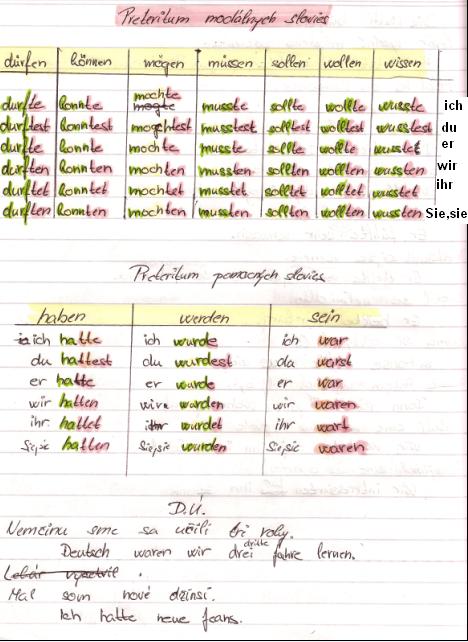 Preteritum modálnych slovies
dürfen können mögen müssen sollen wollen wissen
mochte
durfte konnte mogte musste sollte wollte wusste ich
durftest konntest mochtest musstest solltest wolltest wusstest du
durfte konnte mochte musste sollte wollte wusstet er
durften konnten mochten mussten sollten wollten wussten wir
durftet konntet mochtet musstet solltet wolltet wusstet ihr
durften konnten mochten mussten sollten wollten wussten Sie,sie
Preteritum pomocných slovies
haben werden sein
ich hatte ich wurde ich war
du hattest du wurdest du warst
er hatte er wurde er war
wir hatten wir wurden wir waren
ihr hattet ihr wurdet ihr wart
Sie,sie hatten Sie,sie wurden Sie,sie waren
D.Ú.
Nemčinu sme sa učili tri roky.
dritte
Deutsch waren wir drei Jahre lernen.
Lekár vysvetlil .
Mal som nové džínsi.
Ich hatte neue Jeans.